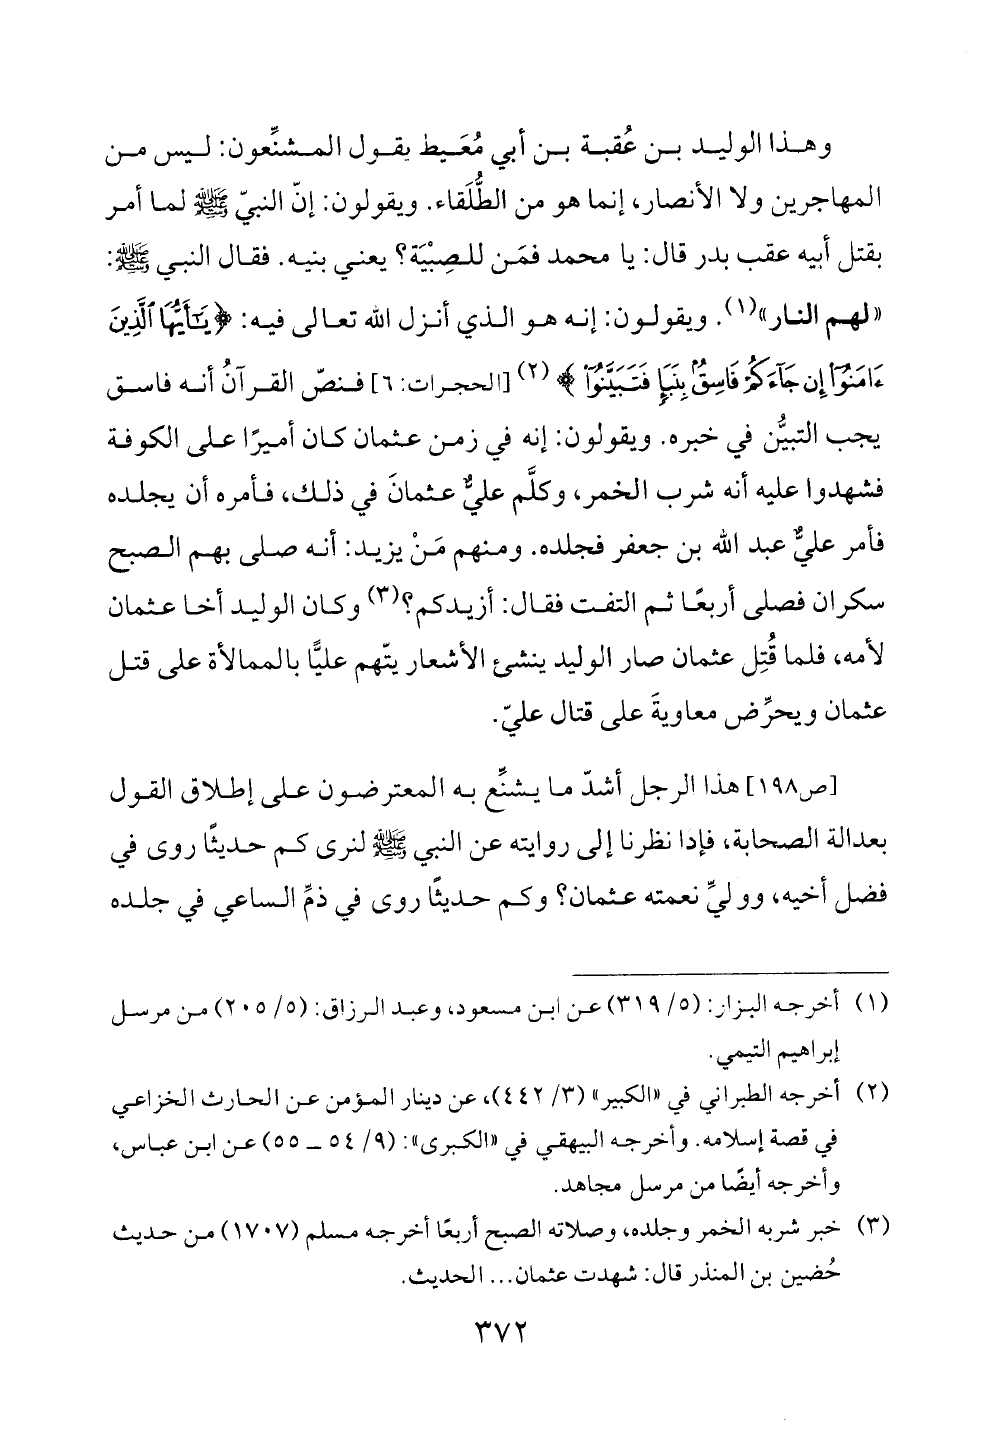 وهذا الوليد بن عُقبة بن أبي مُعَيط يقول المشنِّعون: ليس من
المهاجرين ولا الأنصار، إنما هو من الطُّلَقاء. ويقولون: إنّ النبيّ ﷺ لما أمر
بقتل أبيه عقب بدر قال: يا محمد فمَن للصِبْيَة؟ يعني بنيه. فقال النبي ﷺ:
«لهم النار»(١). ويقولون: إنه هو الذي أنزل الله تعالى فيه: ﴿يَـٰٓأَيُّهَا ٱلَّذِينَ
ءَامَنُوٓا۟ إِن جَآءَكُمْ فَاسِقٌۢ بِنَبَإٍ فَتَبَيَّنُوٓا۟﴾(٢) [الحجرات: ٦] فنصّ القرآنُ أنه فاسق
يجب التبيُّن في خبره. ويقولون: إنه في زمن عثمان كان أميرًا على الكوفة
فشهدوا عليه أنه شرب الخمر، وكلَّم عليٌّ عثمانَ في ذلك، فأمره أن يجلده
فأمر عليٌّ عبد الله بن جعفر فجلده. ومنهم مَنْ يزيد: أنه صلى بهم الصبح
سكران فصلى أربعًا ثم التفت فقال: أزيدكم؟(٣) وكان الوليد أخا عثمان
لأمه، فلما قُتِل عثمان صار الوليد ينشئ الأشعار يتّهم عليًّا بالممالأة على قتل
عثمان ويحرِّض معاويةَ على قتال عليّ.
[ص١٩٨] هذا الرجل أشدّ ما يشنِّع به المعترضون على إطلاق القول
بعدالة الصحابة، فإذا نظرنا إلى روايته عن النبي ﷺ لنرى كم حديثًا روى في
فضل أخيه، ووليِّ نعمته عثمان؟ وكم حديثًا روى في ذمِّ الساعي في جلده
(١) أخرجه البزار: (٥/ ٣١٩) عن ابن مسعود، وعبد الرزاق: (٥/ ٢٠٥) من مرسل
إبراهيم التيمي.
(٢) أخرجه الطبراني في «الكبير» (٣/ ٤٤٢)، عن دينار المؤمن عن الحارث الخزاعي
في قصة إسلامه. وأخرجه البيهقي في «الكبرى»: (٩/ ٥٤ _ ٥٥) عن ابن عباس،
وأخرجه أيضًا من مرسل مجاهد.
(٣) خبر شربه الخمر وجلده، وصلاته الصبح أربعًا أخرجه مسلم (١٧٠٧) من حديث
حُضين بن المنذر قال: شهدت عثمان... الحديث.
٣٧٢